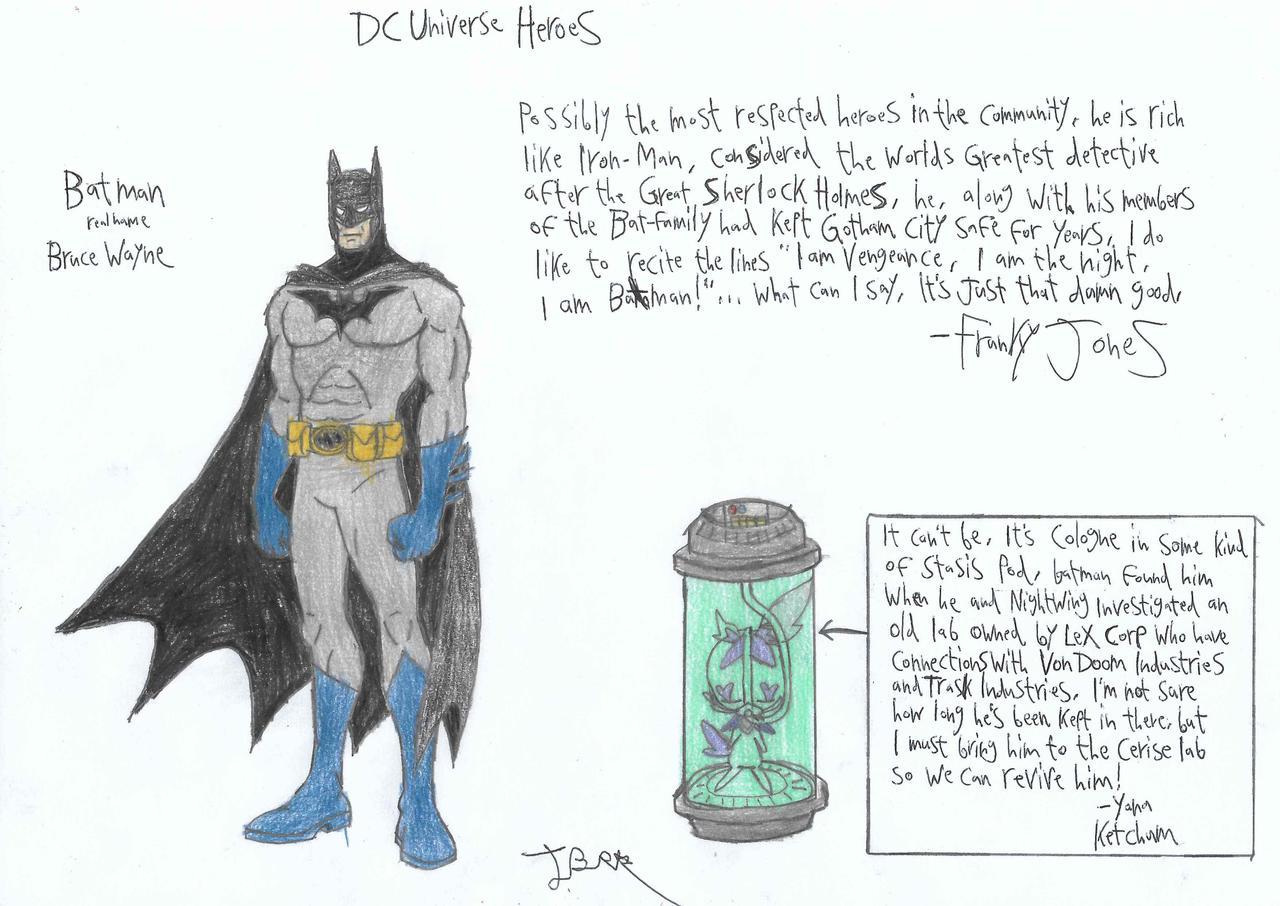 DC Universe Heroes
Batman
real name
Bruce Wayne
Possibly the most respected heroes in the community, he is rich
like Iron-Man, considered the Worlds Greatest detective
after the Great Sherlock Holmes, he, along with his members
of the Bat-Family had kept Gotham City safe for years, I do
like to recite the lines "I am Vengeance, I am the night,
I am Batman!"... what can I say, it's just that damn good,
-Franky Jones
It can't be, It's Cologne in some kind
of stasis Pod, batman found him
when he and Nightwing investigated an
old lab owned by Lex Corp who have
connections with Von Doom Industries
and Trask Industries, I'm not sure
how long he's been kept in there, but
I must bring him to the Cerise lab
so we can revive him!
-Yana
Ketchum